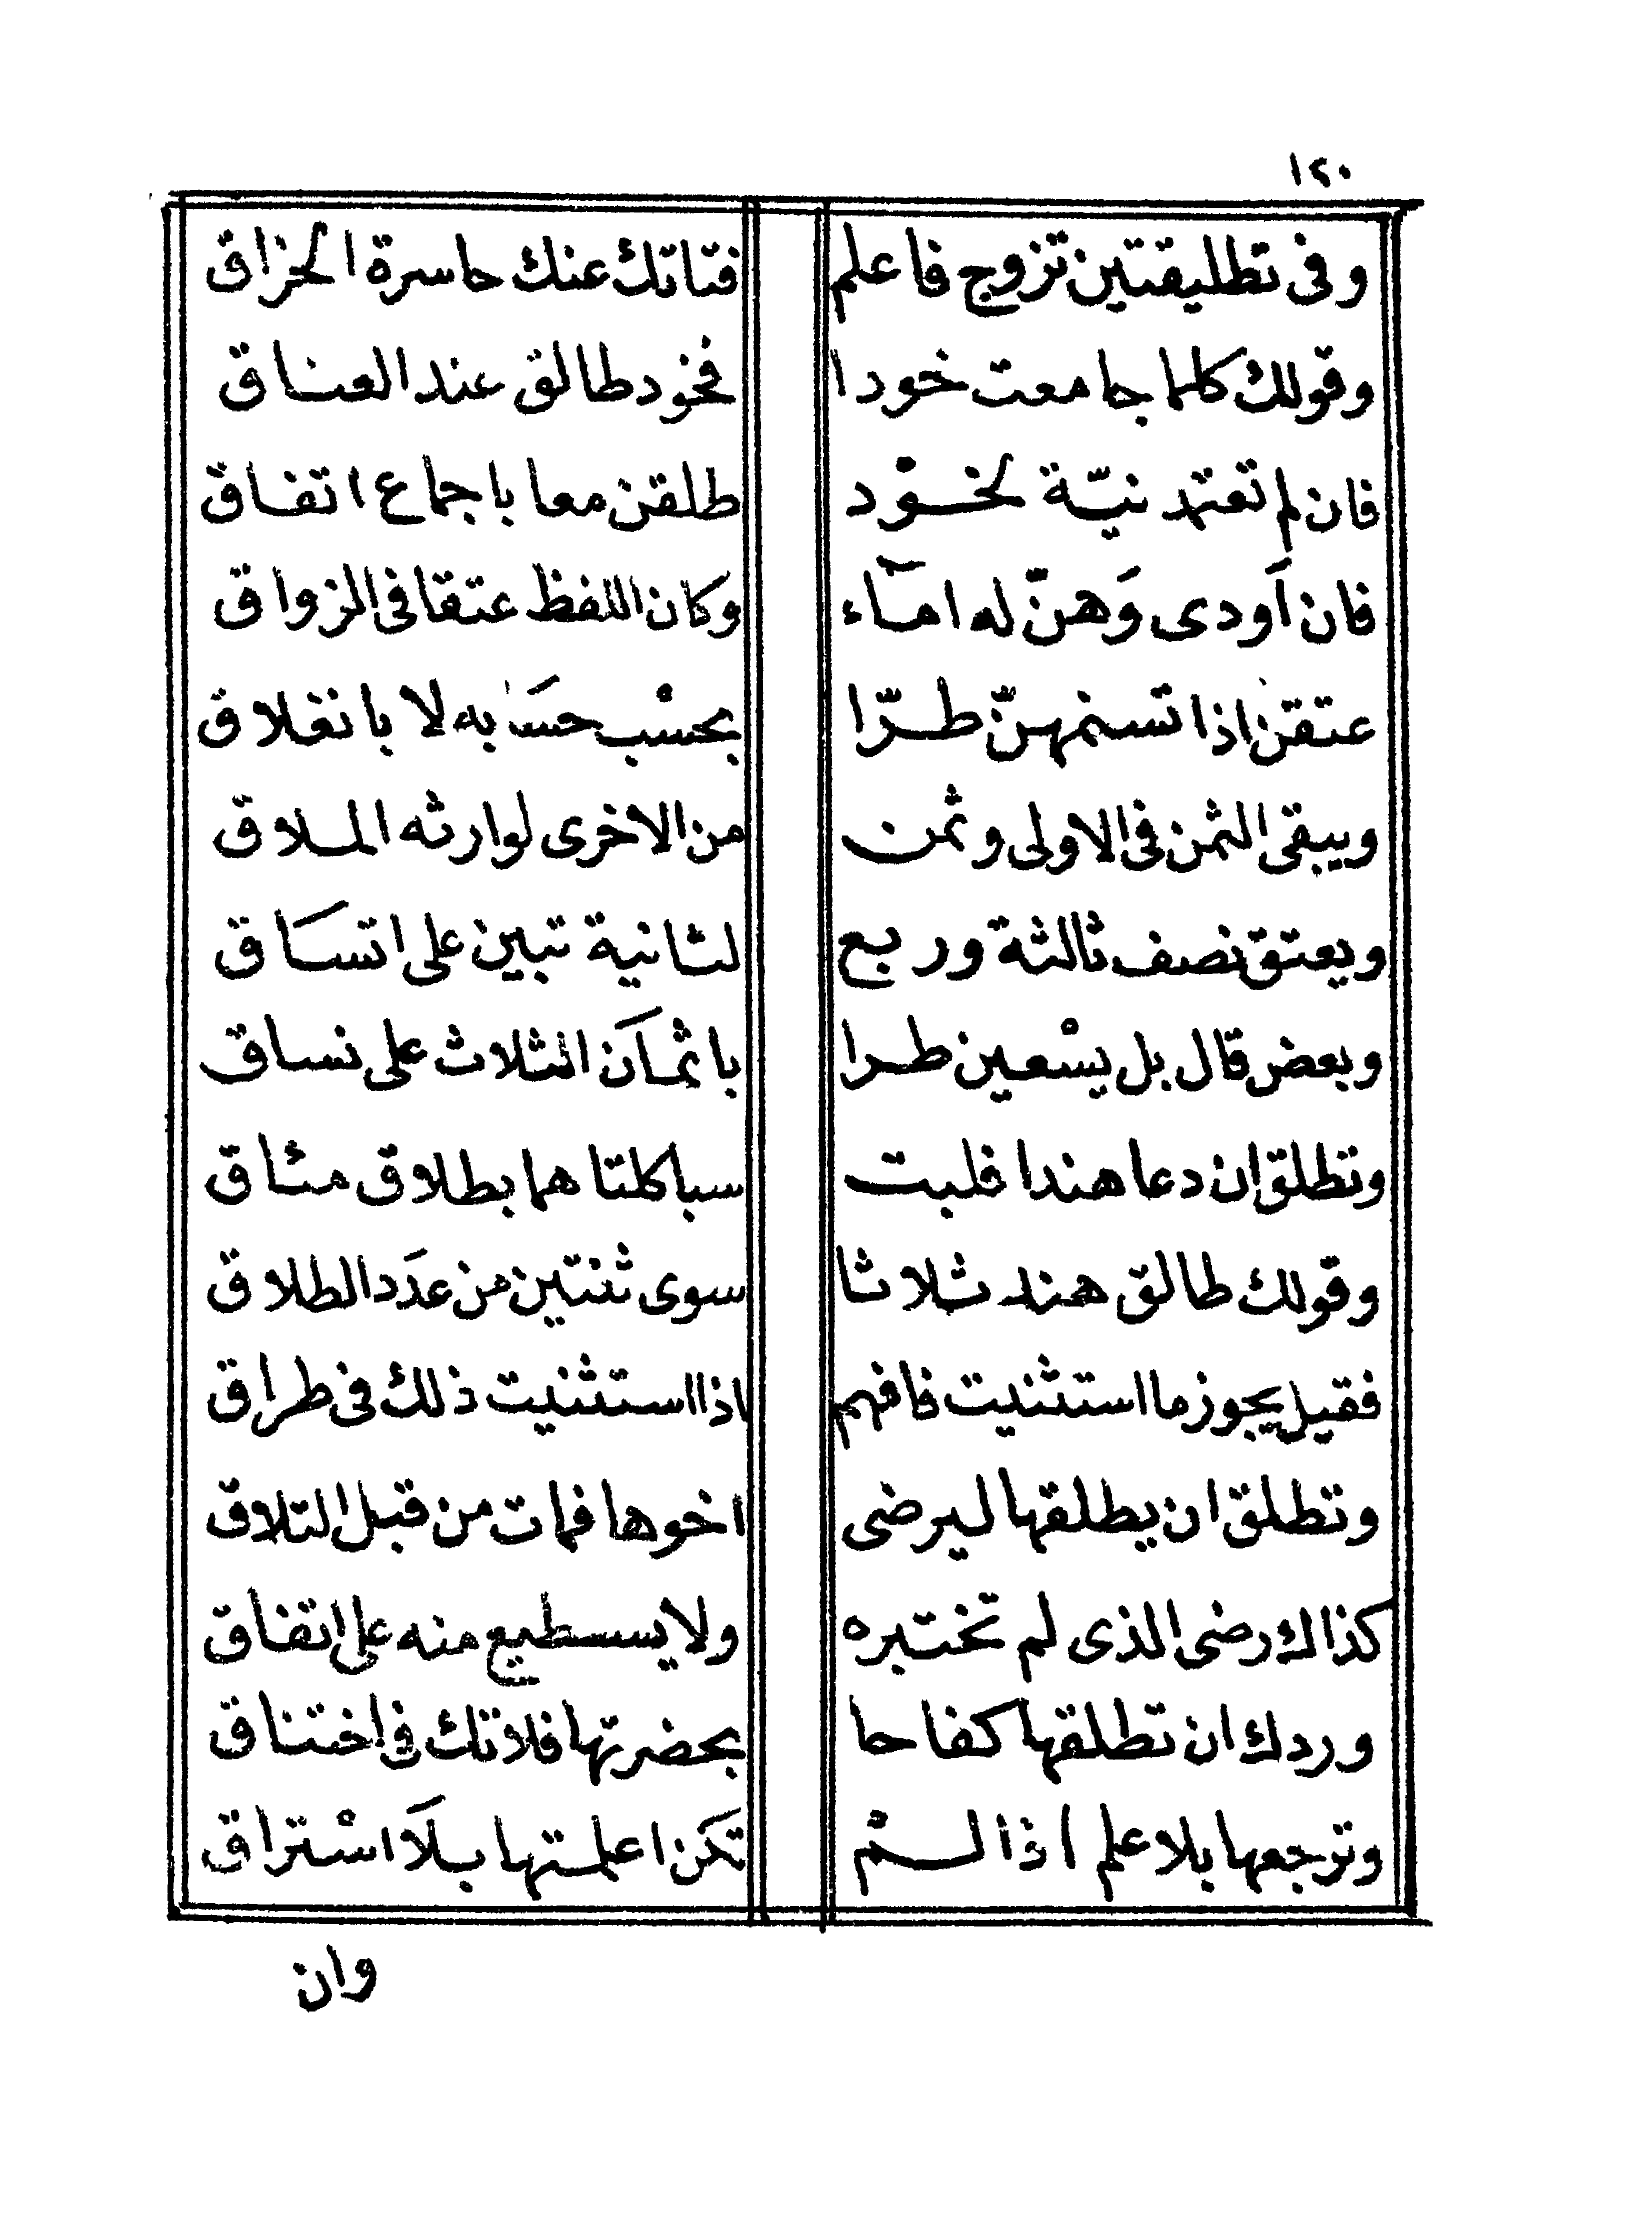 ١٢٠
وفى تطليقتين تزوج فاعلم فتاتك عنك حاسرة الخزاق
وقولك كلما جامعت خودا فخود طالق عند العناق
فان لم تعتمد نيّة لخوْد طلقن معا باجماع اتفاق
فان اَودى وَهنّ له امآء وكان اللفظ عتقا فى الزواق
عتقن اذا تسنمهنّ طرّا بحسْب حسَابه لا بانغلاق
ويبقى الثمن فى الاولى وثمن من الاخرى لوارثه الملاق
ويعتق نصف ثالثة وربع لثانية تبين على اتسَاق
وبعض قال بل يسْعين طرا باثمانَ الثلاث على نساق
وتطلق ان دعا هندا فلبت سبا كلتاهما بطلاق مثاق
وقولك طالق هند ثلاثا سوى ثنتين من عدَد الطلاق
فقيل يجوز ما استثنيت فافهم اذا استثنيت ذلك فى طراق
وتطلق ان يطلقها ليرضى اخوها فمات من قبل التلاق
كذاك رضى الذى لم تختبره ولا يسطيع منه على اتفاق
وردك ان تطلقها كفاحا بحضرتها فلا تك فى اختناق
وترجعها بلا علم اذا لمْ تكن اعلمتها بلَا اسْتراق
وان